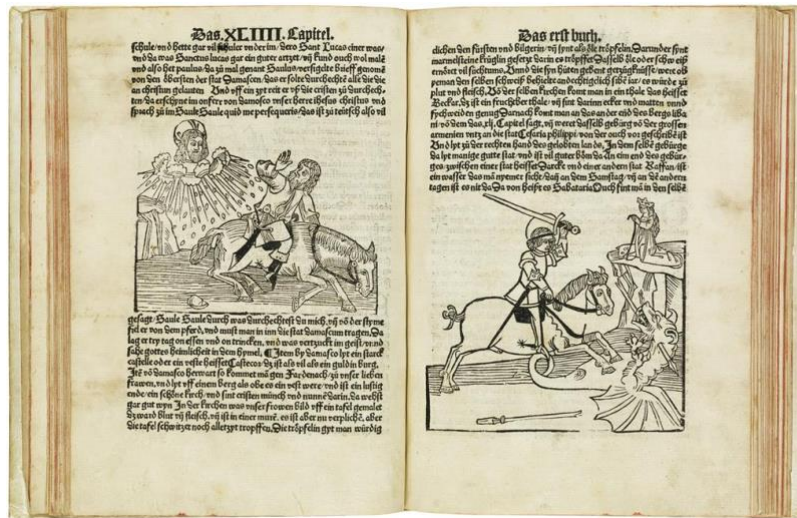 Das. XLIIII. Capitel.
schule vnd hette gar vil schuler vnder im / dero Sant Lucas einer was /
vnd da was Sanctus lucas gar ein guter artzet / vn̄ kund ouch wol malē
vnd also het paulus / da zů mal genant Saulus / versigelte brieff genomē
von den öbersten der stat Damascen. das er solte durchechtē alle die die
an christum gelauten Vnd vff ein zyt reit er vff die cristen zů durchech-
ten / da erschyne im onferr von damasco vnser herre ihesus christus vnd
sprach zů im Saule Saule quid me persequeris / das ist zů teütsch also vil
gesagt / Saule Saule durch was durchechtest du mich. vn̄ vō der styme
fiel er von dem pferd / vnd můst man in inn die stat damascum tragen. Da
lag er try tag on essen vnd on trincken. vnd was vertzuckt im geist / vnd
sahe gottes heimlicheit in dem hymel. Item by damasco lyt ein starck
castelle oder ein veste heisset Castecos / dz ist als vil als ein guldin burg.
Itē vō damasco herwart so kommet mā gen Fardenach zů vnser lieben
frawen. vnd lyt vff einem berg als obe es ein vest were / vnd ist ein lustig
ende / ein schöne kirch / vnd sint cristen münch vnd nunnē darin. da wechst
gar gut wyn In der kirchen was vnser frowen bild vff ein tafel gemalet
dz ward blut vn̄ fleisch. vn̄ ist in einer murē. es ist aber nu verplichē. aber
die tafel schwitzet noch alletzyt tropffen. Die tröpfelin gyt man würdig
Das erst buch.
elichen den fürsten vnd bügerin / vn̄ synt als öle tröpfelin. Darunder synt
marmelsteine krüglin gesetzt darin es tröpffet Dasselb öle oder schweiß
ernört vil suchtums. Vnnd die syn hüten gebent getzügknüsse / wert ob
yeman den selben schweiß behielt andechtigclich sibē iar / es würde zů
plut vnd fleisch. Vō der selben kirchen komt man in ein thale das heisset
Beckar. dz ist ein fruchtber thale / vn̄ sint darinn ecker vnd matten vnnd
fychweiden genug Darnach komt man an das ander end des bergs liba
ni / vō dem das. xlj. Capitel sagt. vn̄ weret dasselb gebürg vō der grossen
armenien vntz an die stat Cesaria philippi / von der ouch vor geschribē ist
Vnd lyt zů der rechten hand des gelobten lands. In dem selbē gebürge
da lyt manige gutte stat / vnd ist vil guter böm da An eim end des gebür-
ges / zwischen einer stat heisset Darck vnd einer andern stat Raffan / ist
ein wasser das mā nyemer sicht / dañ an dem Samstag / vn̄ an dē andern
tagen ist es nit da Da von heißt es Sabataria Ouch fint mā in den selbē